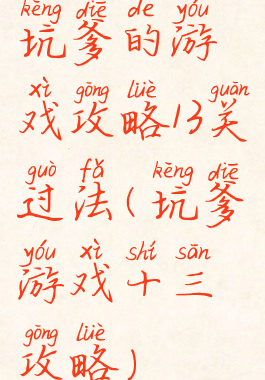 kēng diē de yóu
坑爹的游
xì gōng lüè guān
戏攻略13关
guò fǎ kēng diē
过法(坑爹
yóu xì shí sān
游戏十三
gōng lüè
攻略)